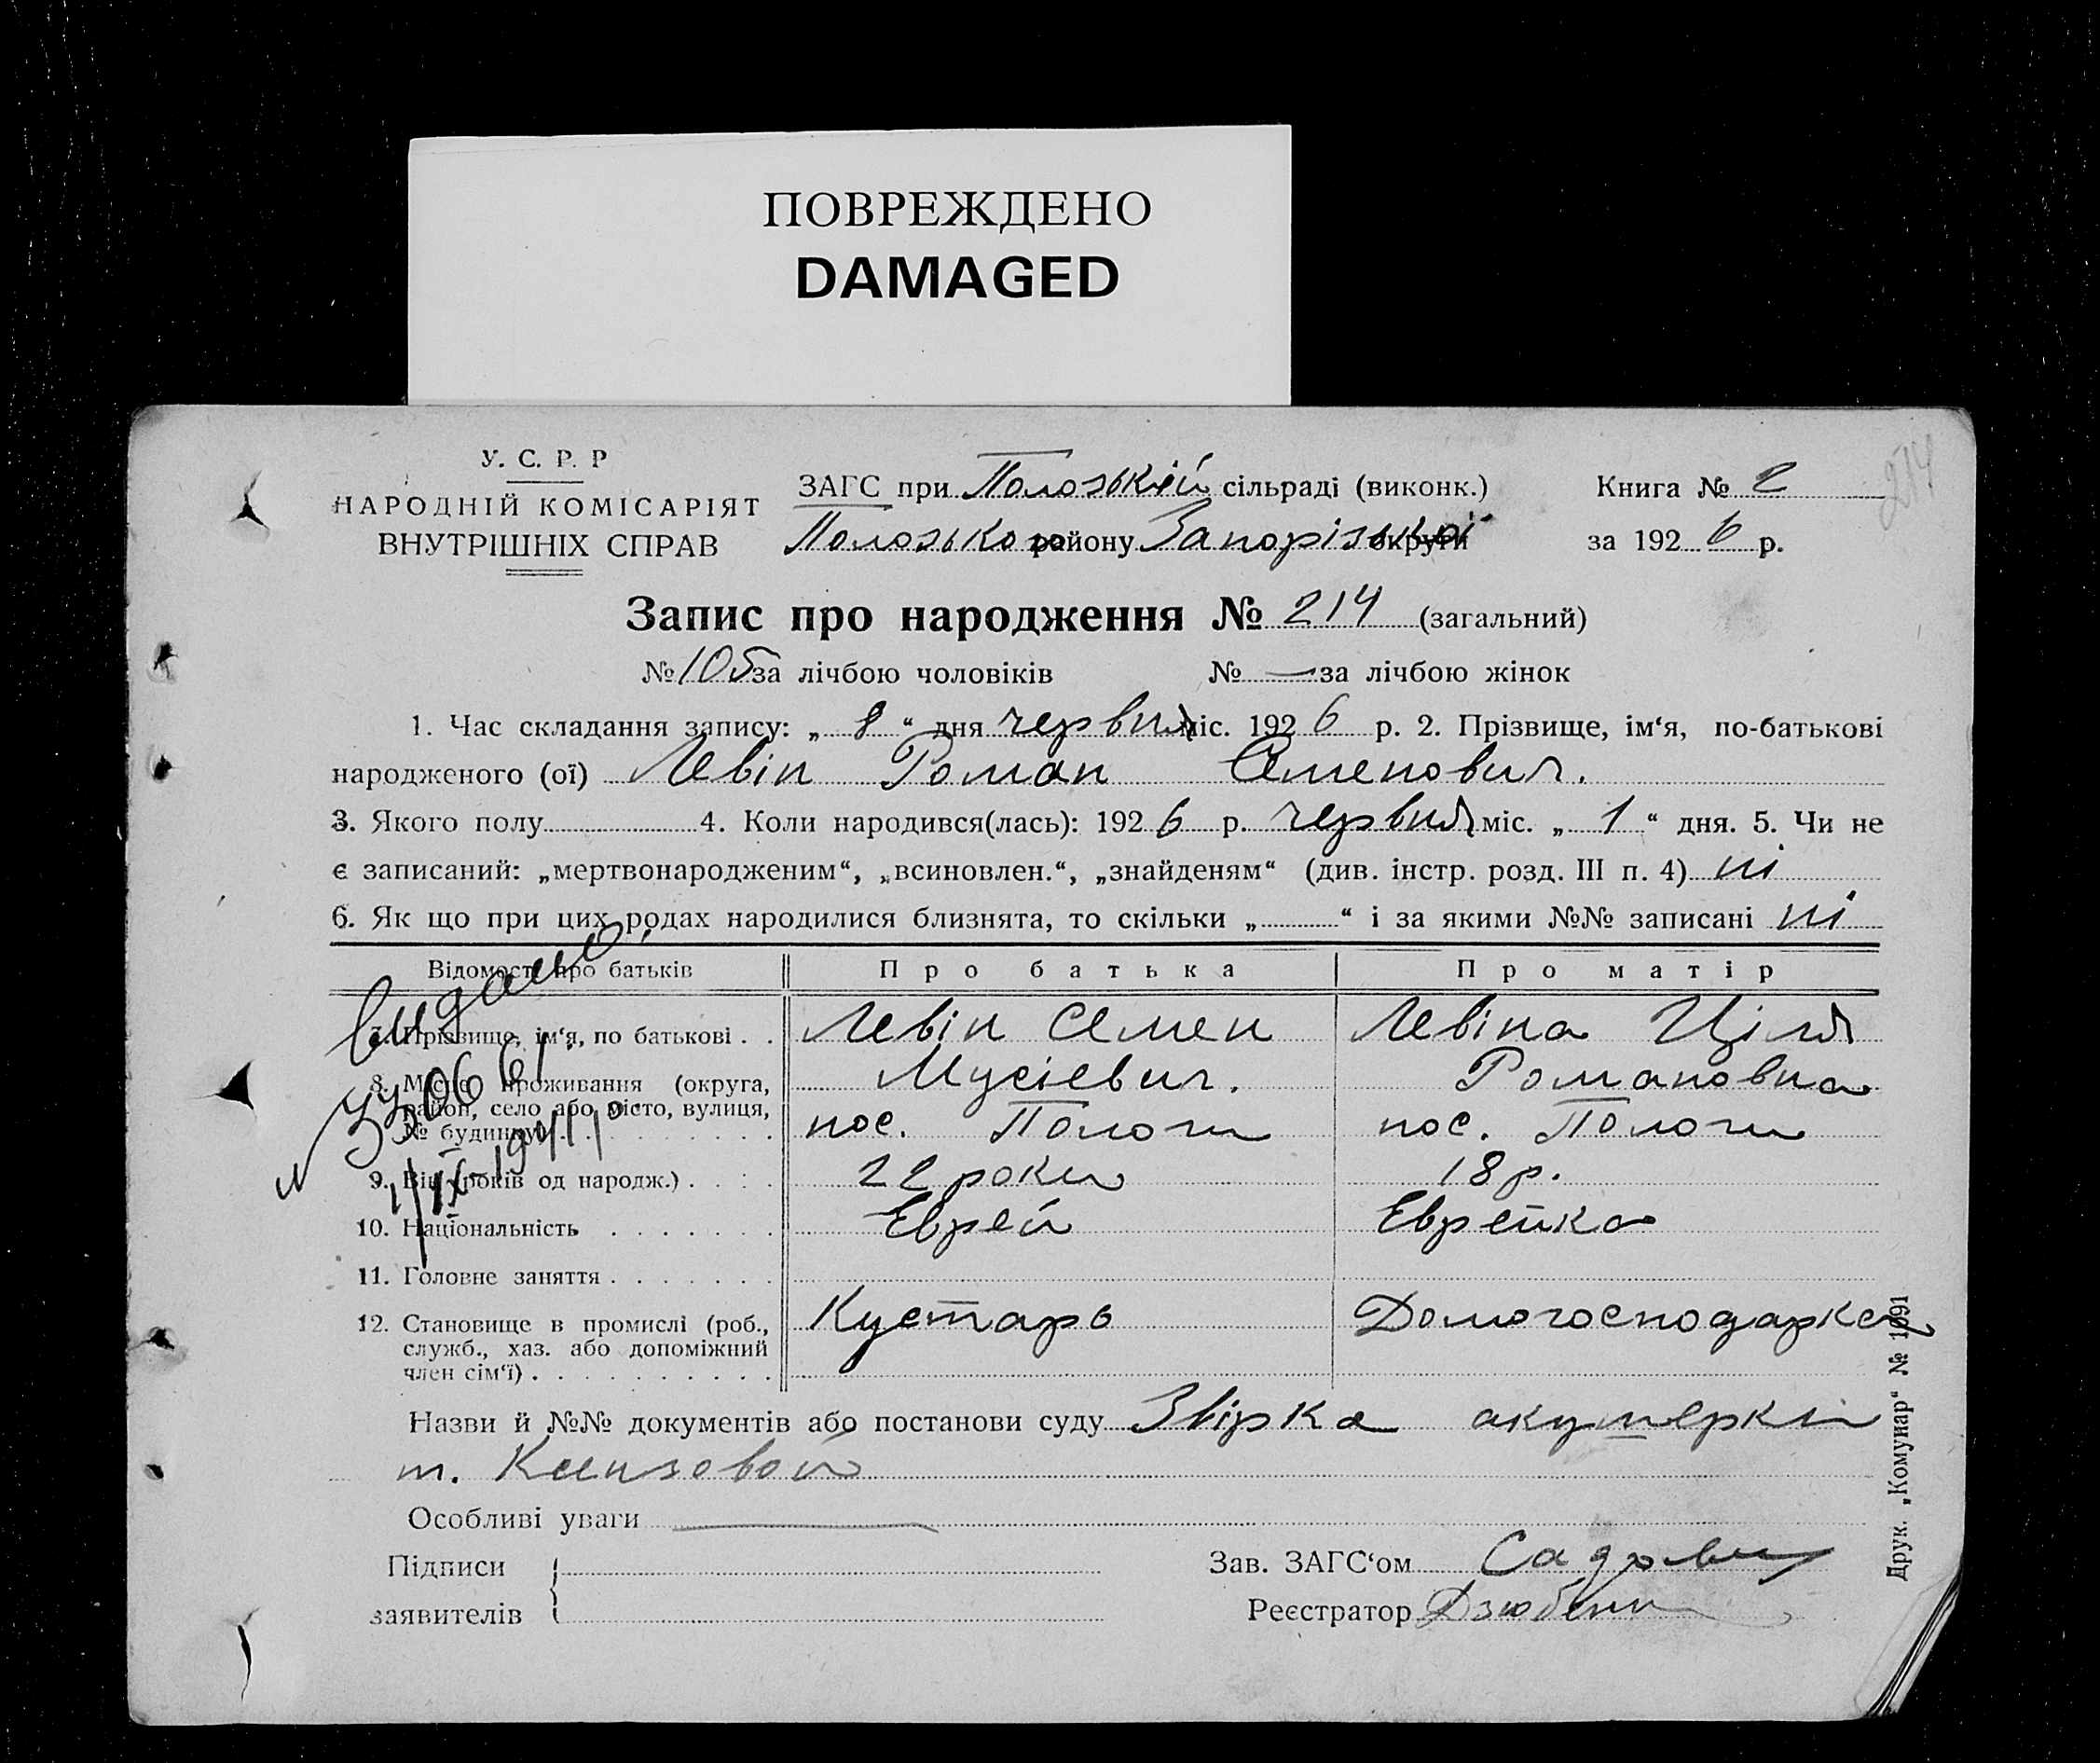 ПОВРЕЖДЕНО
DAMAGED
У. С. Р. Р
НАРОДНІЙ КОМІСАРІЯТ
ВНУТРІШНІХ СПРАВ
ЗАГС при Полозькій сільраді (виконк.)
Полозького району Запорізької округи
Книга № 2
за 1926 р.
214
Запис про народження № 214 (загальний)
№ 105 за лічбою чоловіків № — за лічбою жінок
1. Час складання запису: „ 8 “ дня червня міс. 1926 р. 2. Прізвище, ім‘я, по-батькові
народженого (ої) Левін Роман Семенович.
3. Якого полу 4. Коли народився(лась): 1926 р. червня міс. „ 1 “ дня. 5. Чи не
є записаний: „мертвонародженим“, „всиновлен.“, „знайденям“ (див. інстр. розд. III п. 4) ні
6. Як що при цих родах народилися близнята, то скільки „ “ і за якими №№ записані ні
Відомості про батьків Про батька Про матір
7. Прізвище, ім‘я, по батькові . . Левін Семен Левіна Ціля
Мусієвич. Романовна
8. Місце проживання (округа,
район, село або місто, вулиця,
№ будинку) пос. Пологи пос. Пологи
9. Вік (років од народж.) . . . . 22 роки 18 р.
10. Національність . . . . . . . Еврей Еврейка
11. Головне заняття . . . . . . .
12. Становище в промислі (роб.,
служб., хаз. або допоміжний
член сім‘ї) . . . . . . . . . . Кустарь Домогосподарка
видано
Назви й №№ документів або постанови суду Звірка акушерки
т.
Особливі уваги —
Підписи
заявителів
Зав. ЗАГС‘ом
Реєстратор
Друк. „Комунар“ № 1091